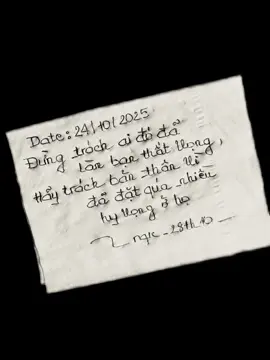 Date: 24/10/2025
Đừng trách ai đó đã
làm bạn thất vọng,
Hãy trách bản thân vì
đã đặt quá nhiều
hy vọng ở họ